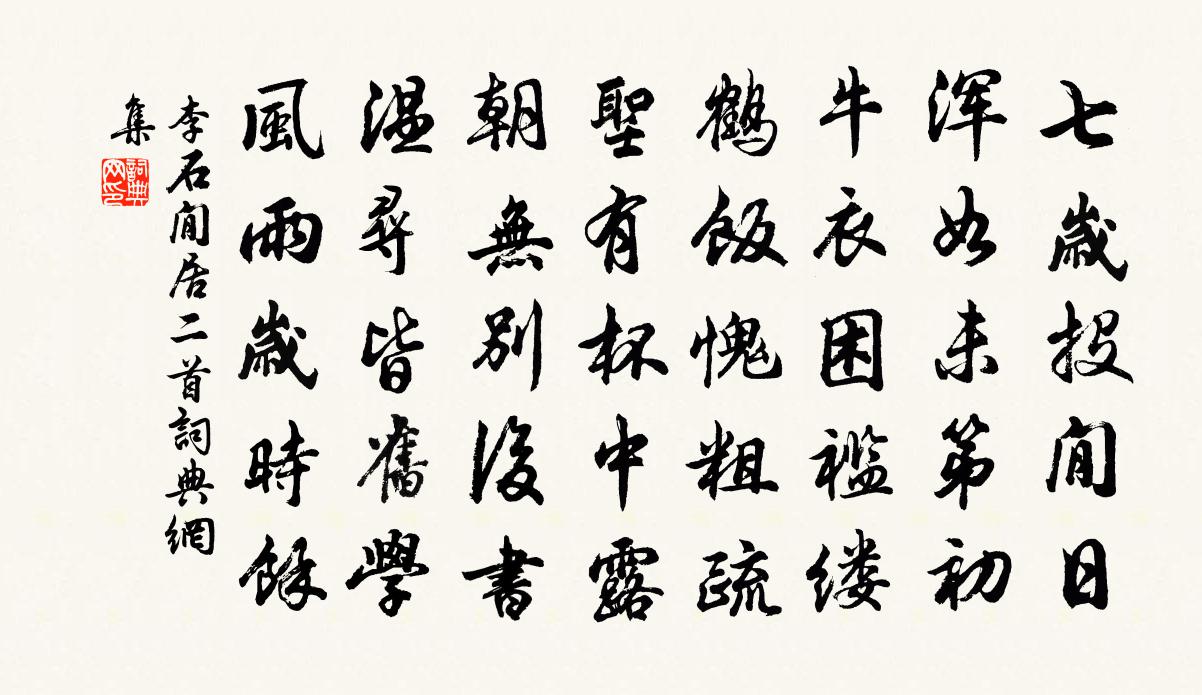 七歲投閒日
渾如未第初
牛衣困襤縷
鶴飯愧粗疏
聖有杯中露
朝無別後書
溫尋皆舊學
風雨歲時餘
李石閒居二首詞典網
集
詞典網印